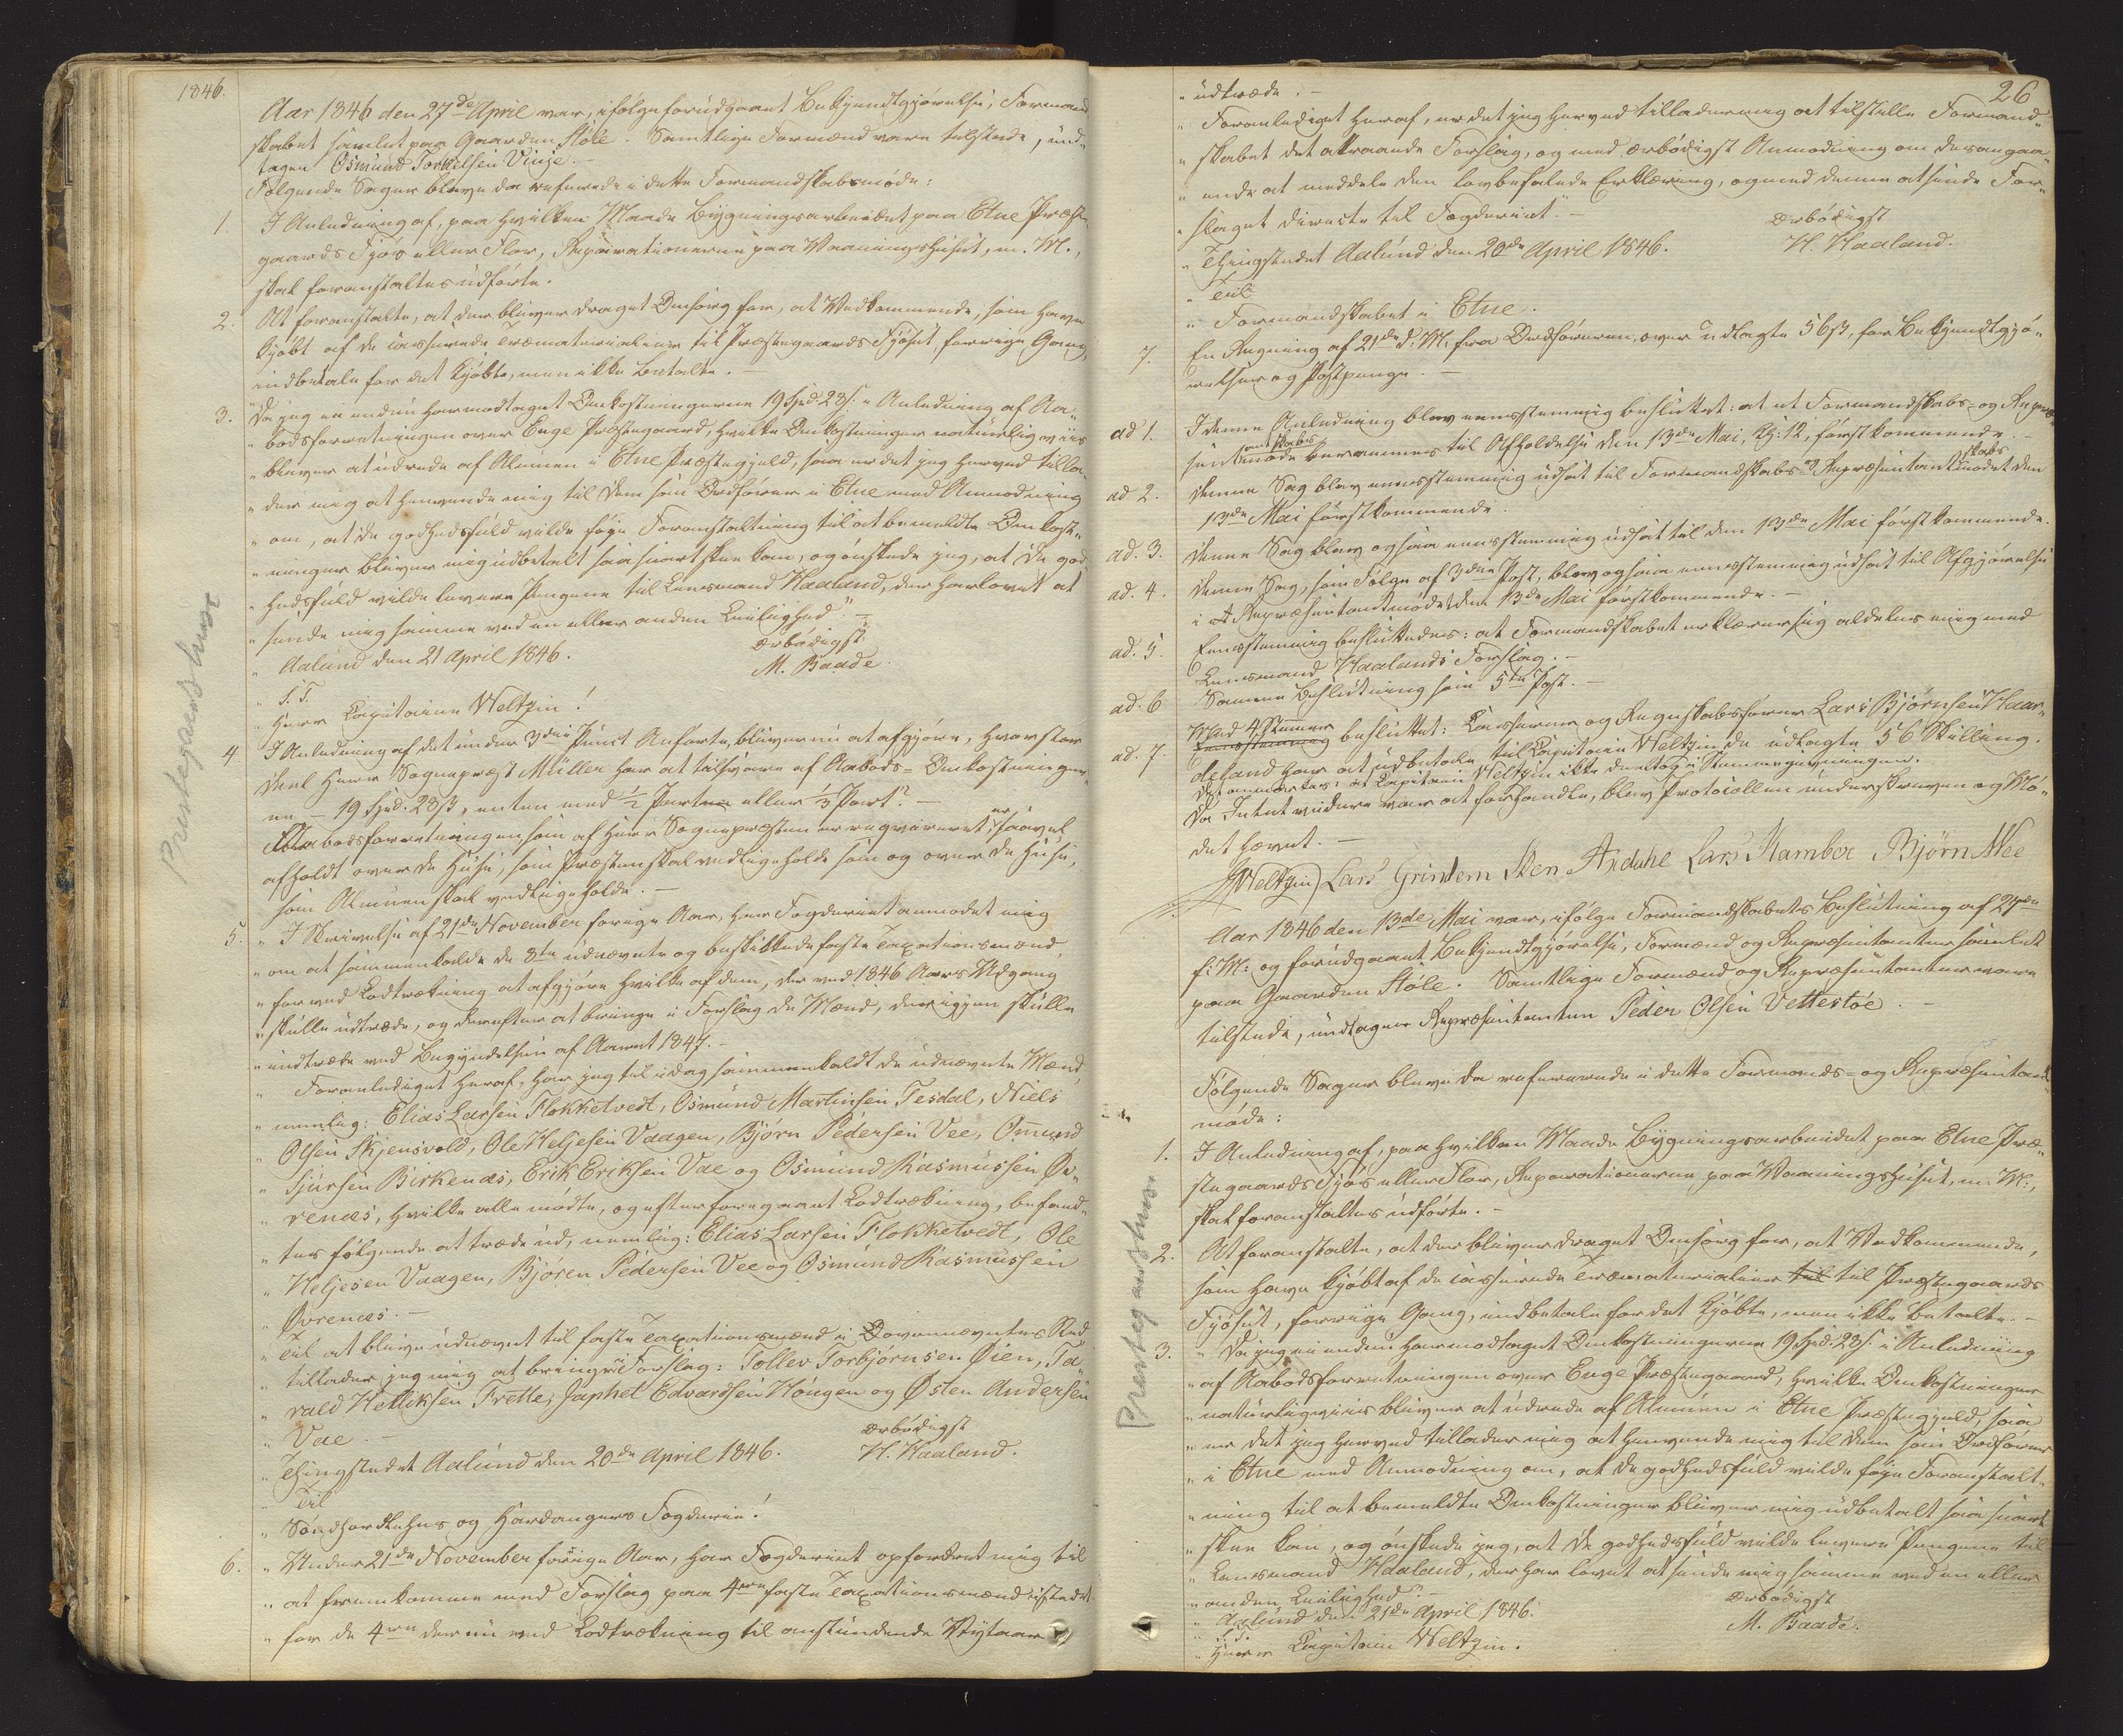 1846.
Aar 1846 den 27de April var, ifølge forudgaaet Bekjendtgjørelse, Formand
skabet samlet paa Gaarden Støle. Samtlige Formænd vare tilstede, und-
tagen Osmund Torkelsen Vinje.-
Følgende Sager bleve da refererede i dette Formandskabsmøde:
1. I Anledning af, paa hvilken Maade Bygningsarbeidet paa Etne Præste-
gaards Fjøs eller Flor, Reparationerne paa Vaaningshuset, m. M.,
skal foranstaltes udførte.
2. At foranstalte, at der bliver draget Omsorg for, at Vedkommende, som have
kjøbt af de casserede Træmaterialier til Præstegaards Fjøset, forrige Gang,
indbetale for det Kjøbte, men ikke Betalte.-
3. "Da jeg ei endnu har modtaget Omkostningerne 19 Spd. 28 s. i Anledning af Aa-
"bodsforretningen over Enge Præstegaard, hvilke Omkostninger naturligviis
"bliver at udrede af Almuen i Etne Præstegjeld, saa er det jeg herved tilla-
"der mig at henvende mig til Dem som Ordfører i Etne med Anmodning
"om, at De godhedsfuld vilde føye Foranstaltning til at bemeldte Omkost-
"ninger bliver mig udbetalt saa snart skee kan, og ønskede jeg, at De god
"hedsfuld vilde levere Pengene til Lensmand Haaland, der har lovet at
"sende mig samme ved en eller anden Leilighed".-
" Aalund den 21 April 1846. Ærbødigst
M. Baade.
" S. T.
" Herr Capitaine Weltzin!
4 I Anledning af det under 3die Punct Anførte, bliver nu at afgjøre, hvor stor
Deel Herr Sognepræst Müller har at tilsvare af Aabods-Omkostninger
ne - 19 Spd. 28 ß, enten med 1/2 Parten eller 1/3 Part?-
Aabodsforretningen som af Herr Sognepræsten er reqvireret, er saavel
afholdt over de Huse, som Præsten skal vedligeholde som og over de Huse,
som Almuen skal vedligeholde.-
5. " I Skrivelse af 21de November forrige Aar, har Fogderiet anmodet mig
"om at sammenkalde de 8te udnævnte og beskikkede faste Taxationsmænd,
"for ved Lodtrækning at afgjøre hvilke af dem, der ved 1846 Aars Udgang
"skulle udtræde, og derefter at bringe i Forslag de Mænd, der igjen skulle
"indtræde ved Begyndelsen af Aaret 1847.-
" Foranlediget heraf, har jeg til idag sammenkaldt de udnævnte Mænd,
"nemlig: Elias Larsen Flokketvedt, Osmund Martinsen Tesdal, Niels
" Olsen Skjensvold, Ole Heljesen Vaagen, Bjørn Pedersen Vee, Omund
" Sjursen Birkenæs, Erik Eriksen Vae og Osmund Rasmussen Øv-
" renæs, hvilke alle mødte, og efter foregaaet Lodtrækning, befand-
" tes følgende at træde ud, nemlig: Elias Larsen Flokketvedt, Ole
" Heljesen Vaagen, Bjøren Pedersen Vee og Osmund Rasmussen
" Øvrenæs.-
" Til at blive udnævnt til faste Taxationsmænd i Ovennævntes Sted
" tillader jeg mig at bringe i Forslag: Tollev Torbjørnsen Øien, Ta-
" rald Helliksen Frette, Japhet Edvardsen Høugen og Østen Andersen
" Vae.-
" Thingstedet Aalund den 20de April 1846. Ærbødigst
H. Haaland.
" Til
" Søndhordlehns og Hardangers Fogderie!
6. " Under 21de November forrige Aar, har Fogderiet opfordret mig til
" at fremkomme med Forslag paa 4re faste Taxationsmænd istedet
" for de 4re der nu ved Lodtrækning til anstundende Nytaar
Prestegaards huse
26
" udtræde.-
" Foranlediget heraf, er det jeg herved tillader mig at tilstille Formand-
" skabet det attraaede Forslag, og med ærbødigst Anmodning om desangaa-
" ende at meddele den lovbefalede Erklæring, og med denne at sende For-
" slaget directe til Fogderiet".-
" Thingstedet Aalund den 20de April 1846. Ærbødigst
H. Haaland.
" Til
" Formandskabet i Etne.
7. En Regning af 21de d: M: fra Ordføreren, over udlagte 56 ß, for Bekjendtgjø-
relser og Postpenge.-
ad 1. I denne Anledning blev eensstemmig besluttet: at et Formandskabs- og Repræ-
sentantskabsmøde berammes til Afholdelse den 13de Mai, Kl: 12, førstkommende.-
ad 2. Denne Sag blev eensstemmig udsat til Formandskabs og Repræsentantskabsmødet den
13de Mai førstkommende.
ad. 3. Denne Sag blev ogsaa eensstemmig udsat til den 13de Mai førstkommende.
ad. 4. Denne Sag, som Følge af 3die Post, blev ogsaa eensstemmig udsat til Afgjørelse
i Repræsentantmødet den 13de Mai førstkommende.-
ad. 5. Eensstemmig besluttedes: at Formandskabet erklærer sig aldeles enig med
Lensmand Haalands Forslag.-
ad. 6 Samme Beslutning som 5te Post.-
ad. 7. Med 4 Stemmer besluttet: Casserer og Regnskabsfører Lars Bjørnsen Haar-
deland har at udbetale til Capitain Weltzin de udlagte 56 Skilling.
Det anmærkes, at Capitain Weltzin ikke deeltog i Stemmegivningen.
Da Intet videre var at forhandle, blev Protocollen underskreven og Mø-
det hævet.-
Weltzin Lars Grindem Sten Arduhe Lars Stamber Bjørn Nee
Aar 1846 den 13de Mai var, ifølge Formandskabets Beslutning af 27de
f: M: og forudgaaet Bekjendtgjørelse, Formænd og Repræsentanter samlet
paa Gaarden Støle. Samtlige Formænd og Repræsentanter vare
tilstede, undtagen Repræsentanten Peder Olsen Vettestøe.-
Følgende Sager bleve da refererede i dette Formands- og Repræsentant-
møde:
1. I Anledning af, paa hvilken Maade Bygningsarbeidet paa Etne Præ-
stegaards Fjøs eller Flor, Reparationerne paa Vaaningshuset, m. M.,
skal foranstaltes udførte.-
2. At foranstalte, at der bliver draget Omsorg for, at Vedkommende,
som have kjøbt af de casserede Træmaterialier til til Præstegaards
Fjøset, forrige Gang, indbetale for det Kjøbte, men ikke Betalte.-
3. " Da jeg ei endnu har modtaget Omkostningerne 19 Spd. 28 s. i Anledning
"af Aabodsforretningen over Enge Præstegaard, hvilke Omkostninger
"naturligviis bliver at udrede af Almuen i Etne Præstegjeld, saa
"er det jeg herved tillader mig at henvende mig til Dem som Ordfører
"i Etne med Anmodning om, at De godhedsfuld vilde føye Foranstalt-
"ning til at bemeldte Omkostninger bliver mig udbetalt saa snart
"skee kan, og ønskede jeg, at De godhedsfuld vilde levere Pengene til
"Lensmand Haaland, der har lovet at sende mig samme ved en eller
"anden Leilighed".-
" Aalund den 21de April 1846. Ærbødigst
M. Baade.
" S. T.
" Herr Capitain Weltzin.
Prestegaards huse